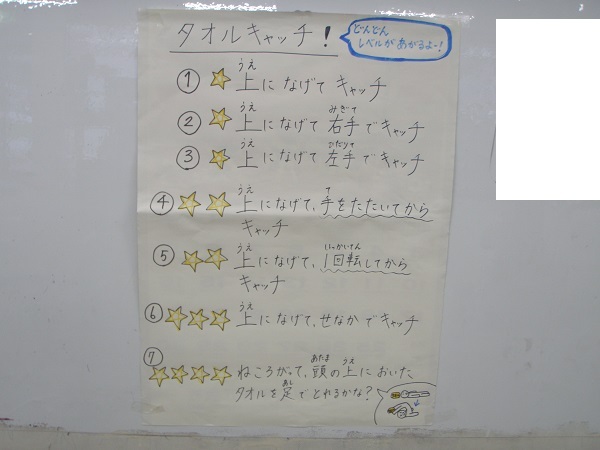 タオルキャッチ!
どんどん
レベルがあがるよー!
① ☆ 上になげて キャッチ
うえ
② ☆ 上になげて 右手でキャッチ
うえ みぎて
③ ☆ 上になげて 左手でキャッチ
うえ ひだりて
④ ☆☆ 上になげて、手をたたいてから
うえ て
キャッチ
⑤ ☆☆ 上になげて、1回転してから
うえ いっかいてん
キャッチ
⑥ ☆☆☆ 上になげて、せなかでキャッチ
うえ
⑦ ☆☆☆☆ ねころがって、頭の上においた
あたま うえ
タオルを足でとれるかな?
あし